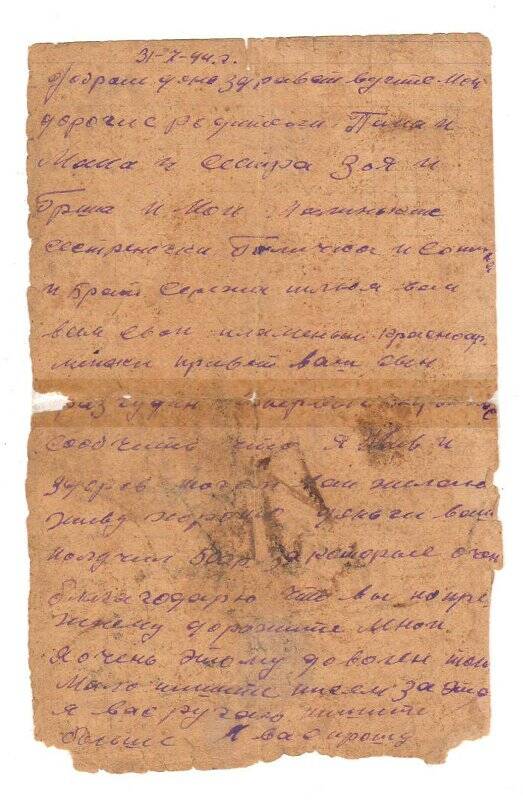 31-7-44 г.
Добрый день здравствуйте мои
дорогие родители Папа и
Мама и сестра Зоя и
Гриша и мои
сестреночки и Соня
и брат Сережа шлю я вам
вам свой пламеный красноар
мейски привет ваш сын
сообчить что я жив и
здоров чего и вам желаю
живу хорошо деньги ваши
получил 500р за которые очен
благодарю что вы попре
жнему дорожите мной.
Я очень этому доволен толь
мало пишите писем за это
я вас ругаю пишите
больше я вас прошу